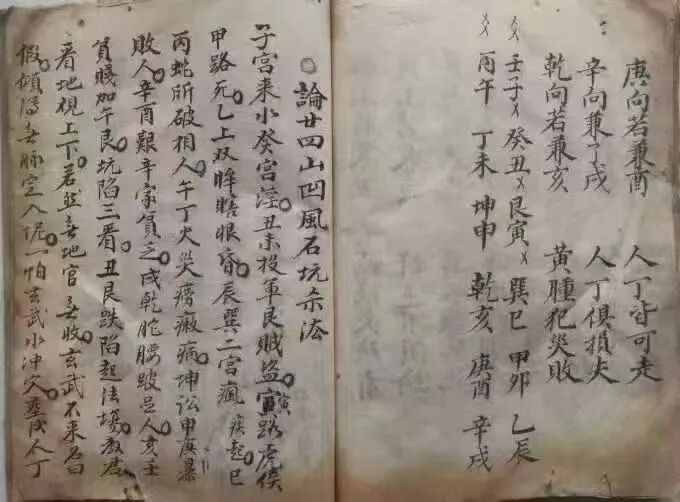 庚向若兼酉　人丁皆可走
辛向兼了戌　人丁俱損失
乾向若兼亥　黄腫犯災敗
壬子　癸丑　艮寅　巽巳　甲卯　乙辰
丙午　丁未　坤申　乾亥　庚酉　辛戌
論廿四山凹風石坑杀法
子宫来水癸宫滛丑未投軍艮贼盗寅路虎傷
甲路死乙上双眸瞎眼昏辰巽二宫瘋疾起巳
丙蛇所破相人午丁火災痨癥病坤訟申庚暴
敗人辛酉艱辛家負乏戌乾駝腰跛足人亥壬
貧賤加午艮坑陷三看丑艮跌陷起法塲教君
看地視上下若然無地官無收玄武不来為
無脉室入怕玄武水冲穴葬人丁